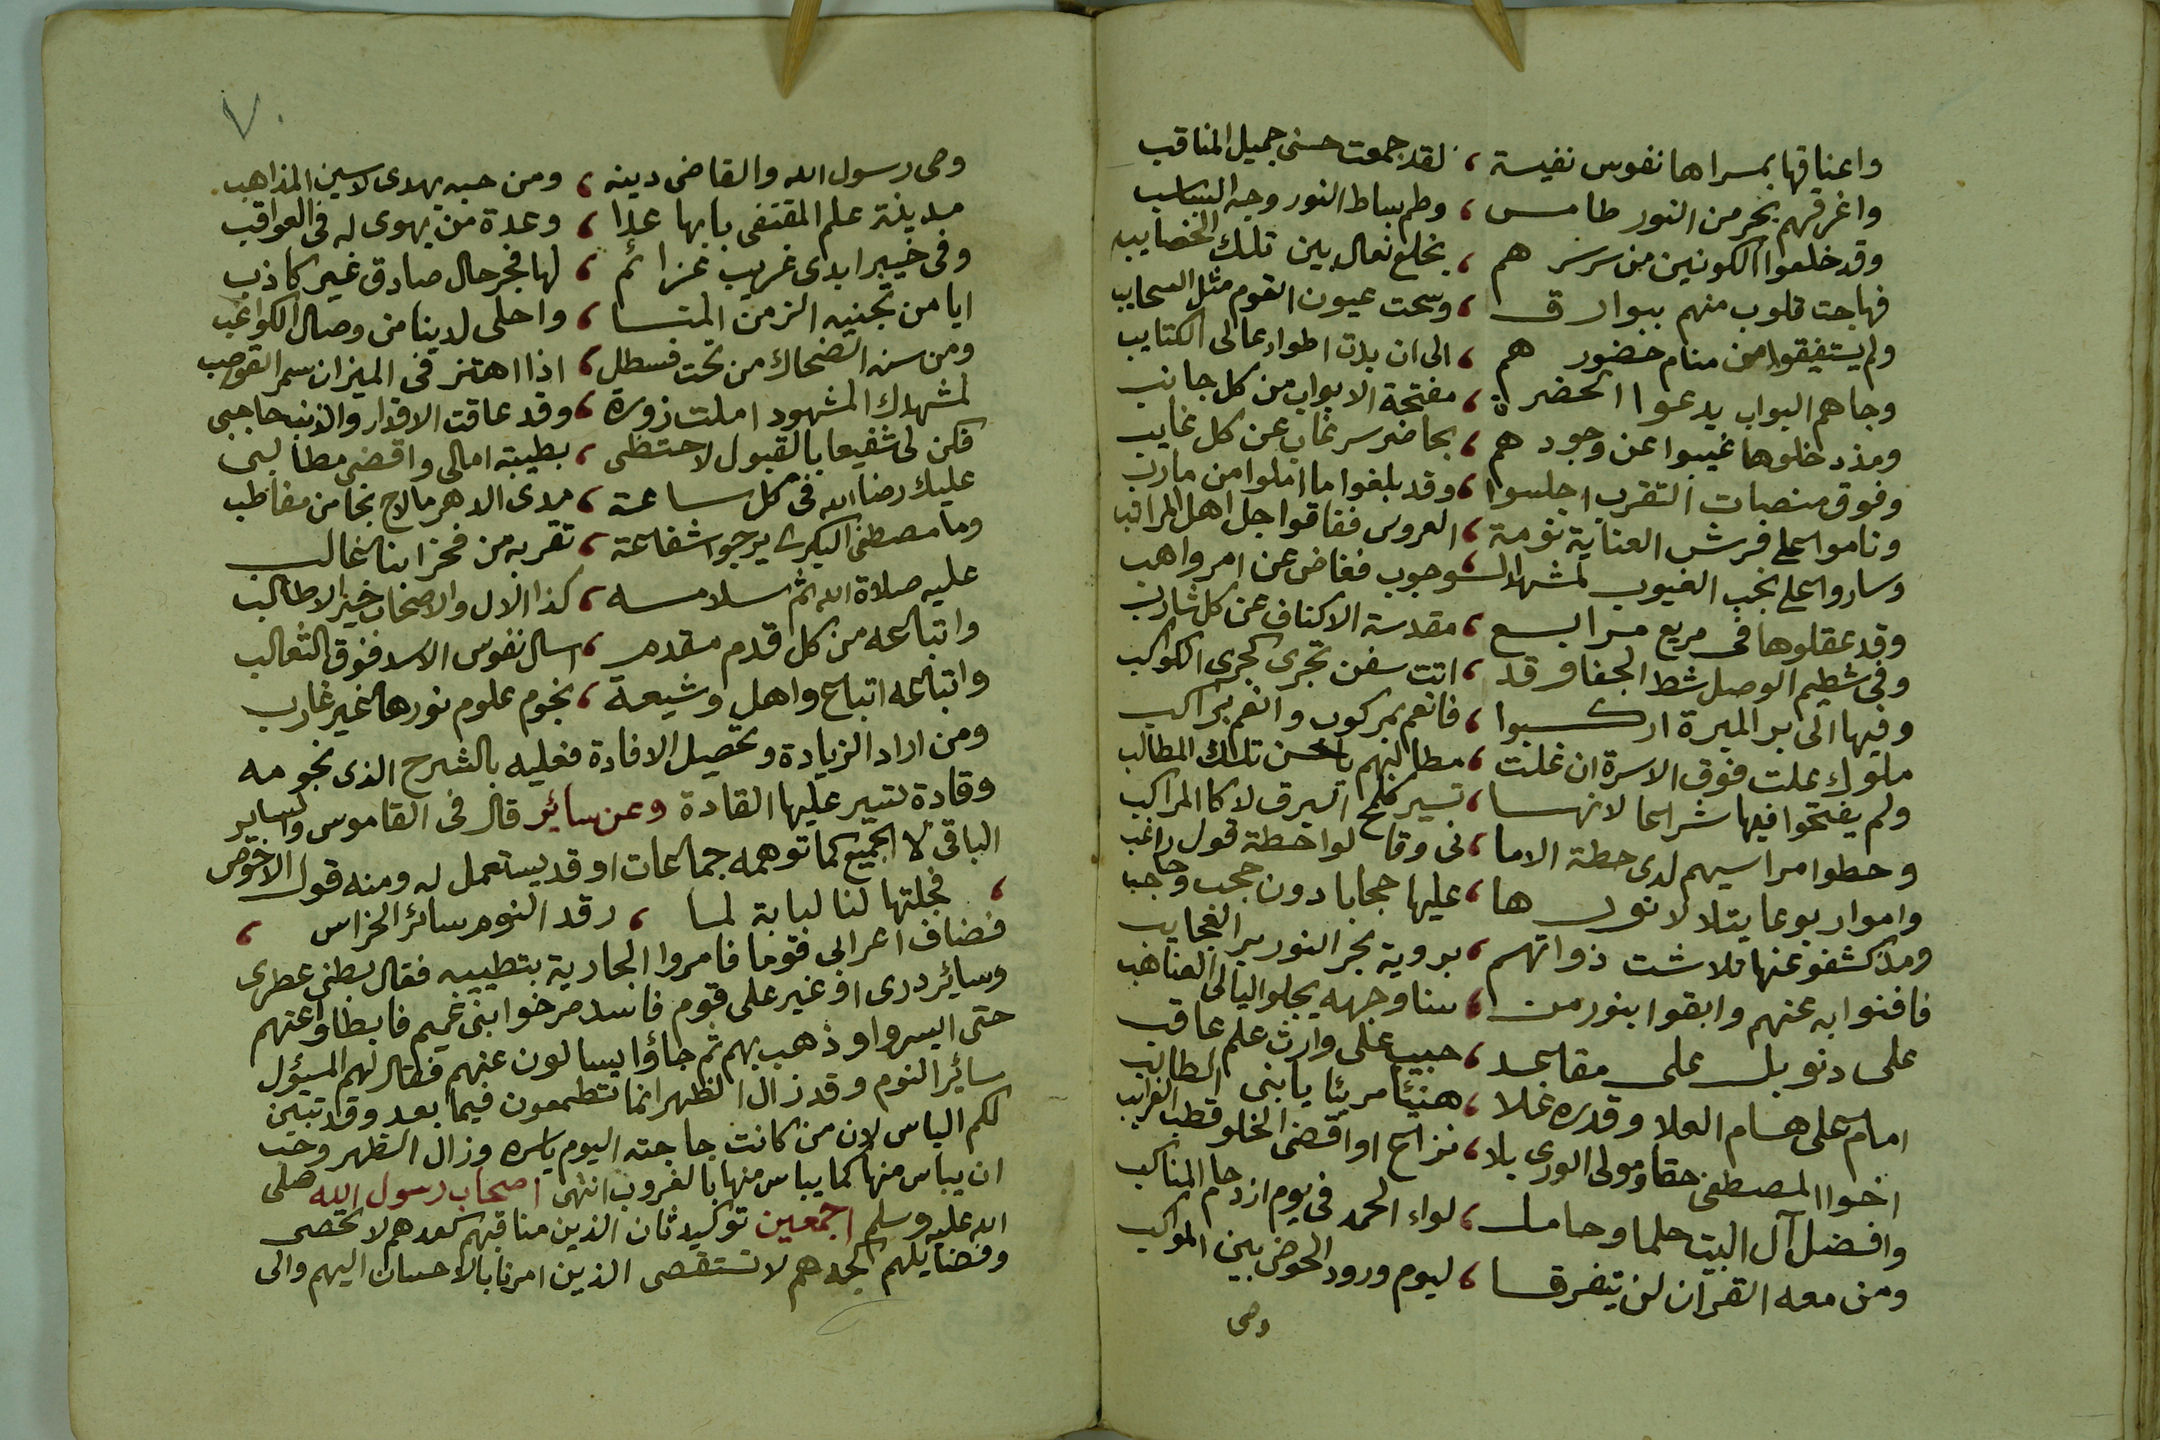 واعناقها بمسراها نفوس نفيسة ، لقد جمعت حسنى جميل المناقب
واغرقهم بحر من النور طامس ، وطم بساط النور وجه السباسب
وقد خلعوا الكونين من سر سرهم ، بخلع نعال بين تلك الخصايب
فهاجت قلوب منهم ببوارق ، وسحت عيون القوم مثل السحايب
ولم يستفيقوا من منام حضورهم ، الى ان بدت اطوار عالى الكتايب
وجاهم البواب يدعوا الحضرة ، مفتحة الابواب من كل جانب
ومذ دخلوها غيبوا عن وجودهم ، بحاضر سر غاب عن كل غايب
وفوق منصات التقرب اجلسوا ، وقد بلغوا ما املوا من مارب
وناموا على فرش العناية نومة ، العروس ففاقوا جل اهل المراقب
وساروا على نجب الغيوب لمشهد الوجوب ففاض عن امر واهب
وقد عقلوها فى مريع مرابع ، مقدسة الاكناف عن كل شارب
وفى شطيم الوصل شط الجفا وقد ، اتت سفن تجرى كجرى الكواكب
وفيها الى بر المبرة اركبوا ، فانعم بمركوب وانعم براكب
ملوك علت فوق الاسرة ان غلت ، مطالبهم يا حسن تلك المطالب
ولم يفتحوا فيها شراعا لانها ، تسير كلمح البرق لا كالمراكب
وحطوا مراسيهم لدى حطة الاما ، نى وقالوا حطة قول راغب
واموا ربوعا يتلالا نورها ، عليها حجابا دون حجب وحاجب
ومذ كشفو عنها تلاشت ذواتهم ، بروية بحر النور بر العجايب
فافنوا به عنهم وابقوا بنور من ، سنا وجهه يجلو اليالى الغياهب
على دنو بل على مقاعد ، حبيب على وارث علم عاقب
امام على هام العلا وقدره غلا ، هنيئا مريئا يا بنى الطالب
اخوا المصطفى حقا ومولى الورى بلا ، نزاع او اقضى الخلو قطب الغرايب
وافضل آل البيت حلما وحامل ، لواء الحمد فى يوم ازدحام المناكب
ومن معه القران لن يتفرقا ، ليوم ورود الحوض بين المواكب
وصى
٧٠
وصى رسول الله والقاضى دينه ، ومن حبه يهدى لاسنى المذاهب
مدينة علم المقتفى بابها غدا ، وعدة من يهوى له فى العواقب
وفى خيبر ابدى غريب عزائم ، لها فجر حال صادق غير كاذب
ايا من تجنيه الز من المنا ، واحلى لدينا من وصال الكواعب
ومن سنه الضحاك من تحت قسطل ، اذا اهتز فى الميزان سمر القواضب
لمشهدك المشهود املت زورة ، وقد عاقت الاقدار والذنب حاجبى
فكن لى شفيعا بالقبول لاحتظى ، بطيبة امالى واقضى مطالبى
عليك رضا الله فى كل ساعة ، مدى الدهر ما لاح نجا من مغاطب
وما مصطفى البكرى يرجوا شفاعة ، تقربه من فخر ابنا غالب
عليه صلاة الله ثم سلامه ، كذا الال والاصحاب خير الاطالب
واتباعه من كل قدم مقدم ، اسال نفوس الاسد فوق الثعالب
واتباعه اتباع واهل وشيعة ، نجوم علوم نورها غير غارب
ومن اراد الزيادة وتحصيل الافادة فعليه بالشرح الذى نجومه
وقادة تسير عليها القادة وعن سائر قال فى القاموس والساير
الباقى لا الجميع كما توهمه جماعات او قد يستعمل له ومنه قول الاحوص
، فجلتها لنا لبابة لما ، رقد النوم سائر الحراس ،
فضاف اعرابى قوما فامروا الجارية بتطييبه فقال بطنى عطرى
وسائر درى او غير على قوم فاستصرخوا بنى عميم فابطاوا عنهم
حتى ايسروا وذهب بهم ثم جاؤا يسالون عنهم فقال لهم المسؤل
سائر النوم وقد زال الظهر انما تطمعون فيما بعد وقد تبين
لكم الياس لان من كانت حاجته اليوم باسره وزال الظهر وجب
ان يياس منها كما يياس منها بالغروب انتهى اصحاب رسول الله صلى
الله عليه وسلم اجمعين توكيد ثان الذين مناقبهم كعدهم لا تحصى
وفضايلهم كجدهم لا تستقصى الذين امرنا بالاحسان اليهم والى